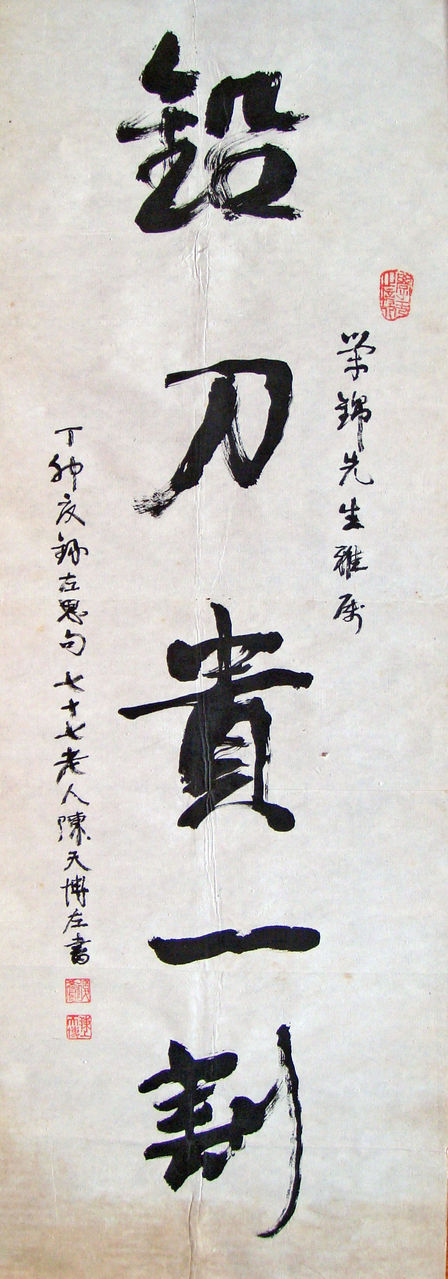 榮錦先生雅屬
鉛刀貴一割
丁卯夏錄左思句七十七老人陳天博左書